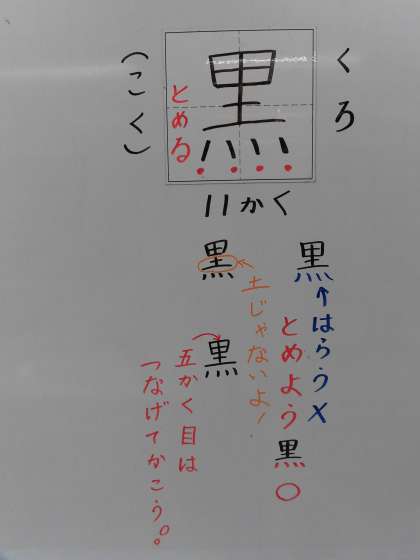 黒
くろ
(こく)
とめる
11かく
黒
↑はらう×
とめよう
黒
○
黒
←土じゃないよ!
黒
五かく目は
つなげてかこう。